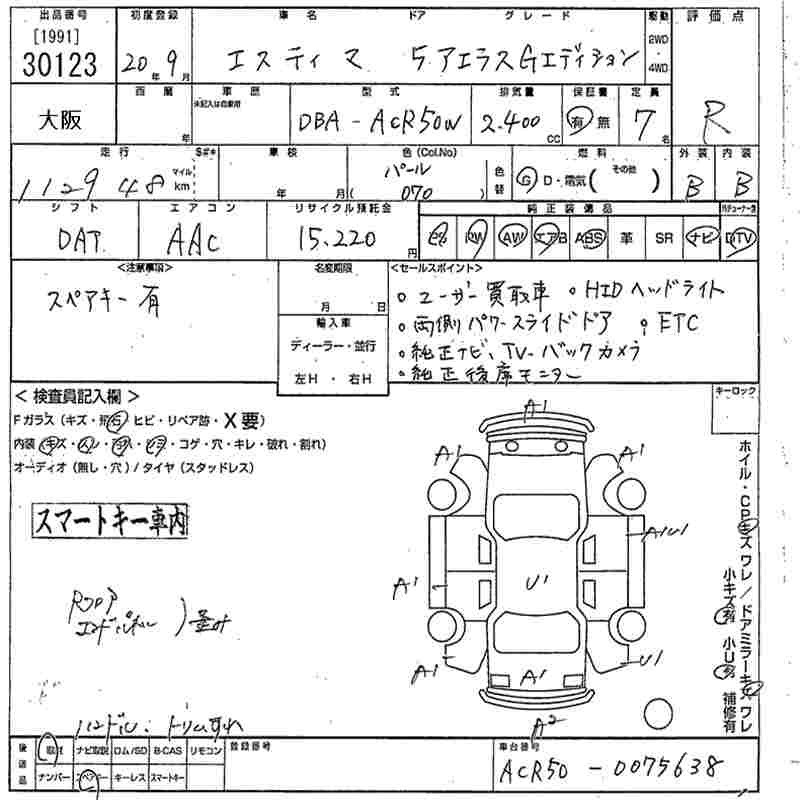 出品番号 初度登録 車名 ドア グレード 駆動 評価点
[1991]
30123 20年 9月 エスティマ 5 アエラスGエディション 2WD 4WD
大阪 西暦 年 車歴 未記入は自家用 型式 排気量 保証書 定員 R
DBA-ACR50W 2.400cc 有 無 7名
走行 S#* 車検 色(Col.No) 燃料 外装 内装
112948 マイル km 年 月 パール (070) 色替 G D・電気( その他 ) B B
シフト エアコン リサイクル預託金 純正装備品
DAT AAC 15.220円 PS PW AW エアB ABS 革 SR ナビ TV
<注意事項> 名変期限 <セールスポイント>
スペアキー有 月 日
輸入車
ディーラー・並行
左H ・ 右H
。ユーザー買取車 。HIDヘッドライト
。両側パワースライドドア 。ETC
。純正ナビ、TV-バックカメラ
。純正後席モニター
<検査員記入欄> キーロック
Fガラス(キズ・飛石 ヒビ・リペア跡・X要)
内装(キズ・コゲ・穴・キレ・破れ・割れ)
オーディオ(無し・穴)/タイヤ(スタッドレス)
スマートキー車内
A1
A1 A1
A1U1
A1 U1
A1 A1 U1
A2
Rフロア
エンドパネル )歪み
ホイル・CPキズ ワレ/ドアミラーキズ ワレ
小キズ有 小U有 補修有
後送品 取説 ナビ取説 ロム/SD B-CAS リモコン 登録番号 車台番号
ナンバー スペアキー キーレス スマートキー ACR50-0075638